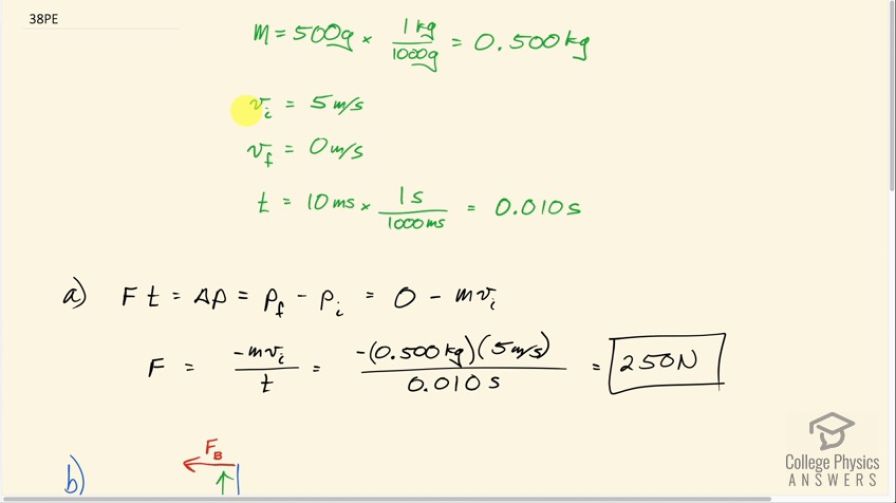 38PE
m = 500g × 1 kg / 1000g = 0.500 kg
v_i = 5 m/s
v_f = 0 m/s
t = 10 ms × 1 s / 1000 ms = 0.010 s
a) F t = Δp = p_f - p_i = 0 - mv_i
F = -mv_i / t = -(0.500 kg)(5 m/s) / 0.010 s = 250N
b) F_B
College Physics
ANSWERS